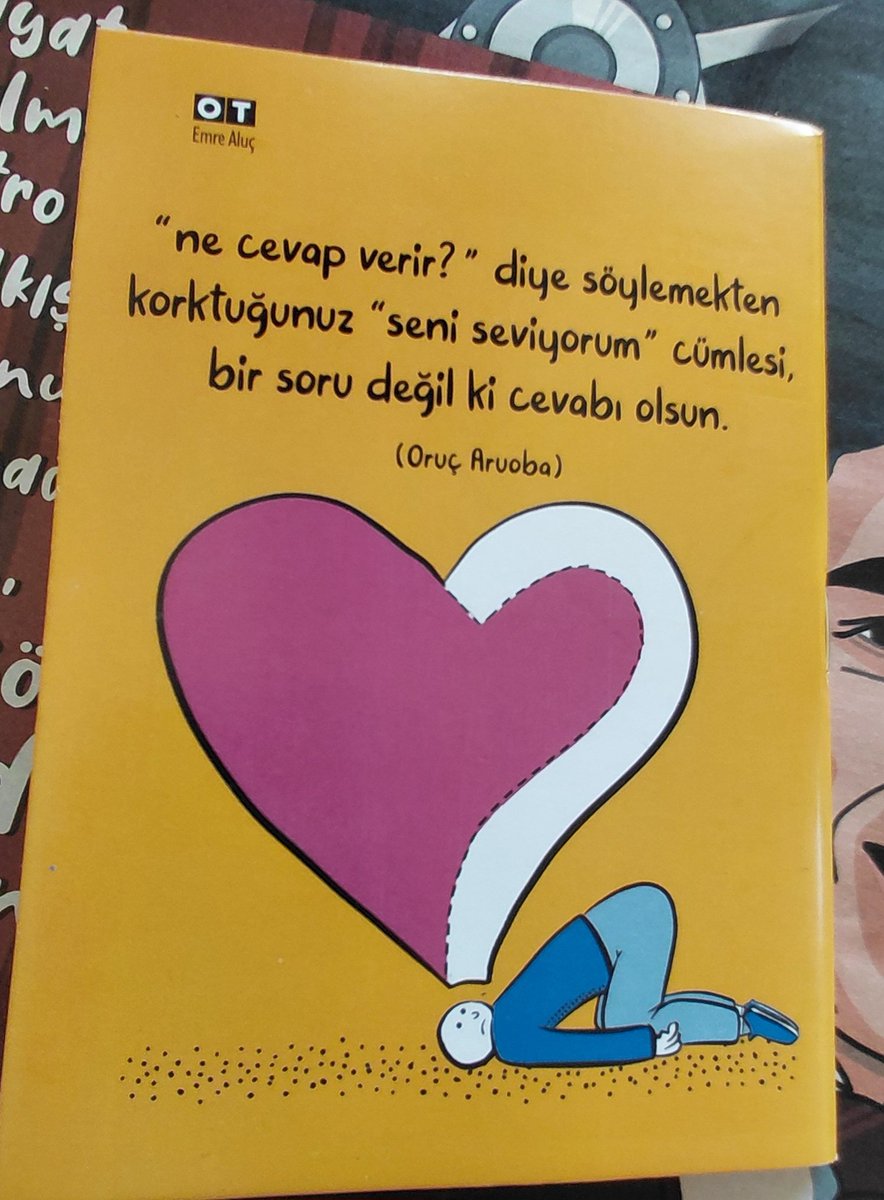 OT
Emre Aluç
"ne cevap verir?" diye söylemekten
korktuğunuz "seni seviyorum" cümlesi,
bir soru değil ki cevabı olsun.
(Oruç Aruoba)